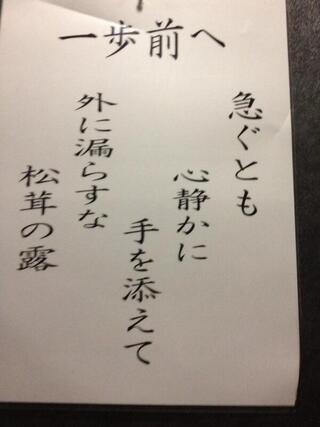 一歩前へ
急ぐとも
心静かに
手を添えて
外に漏らすな
松茸の露